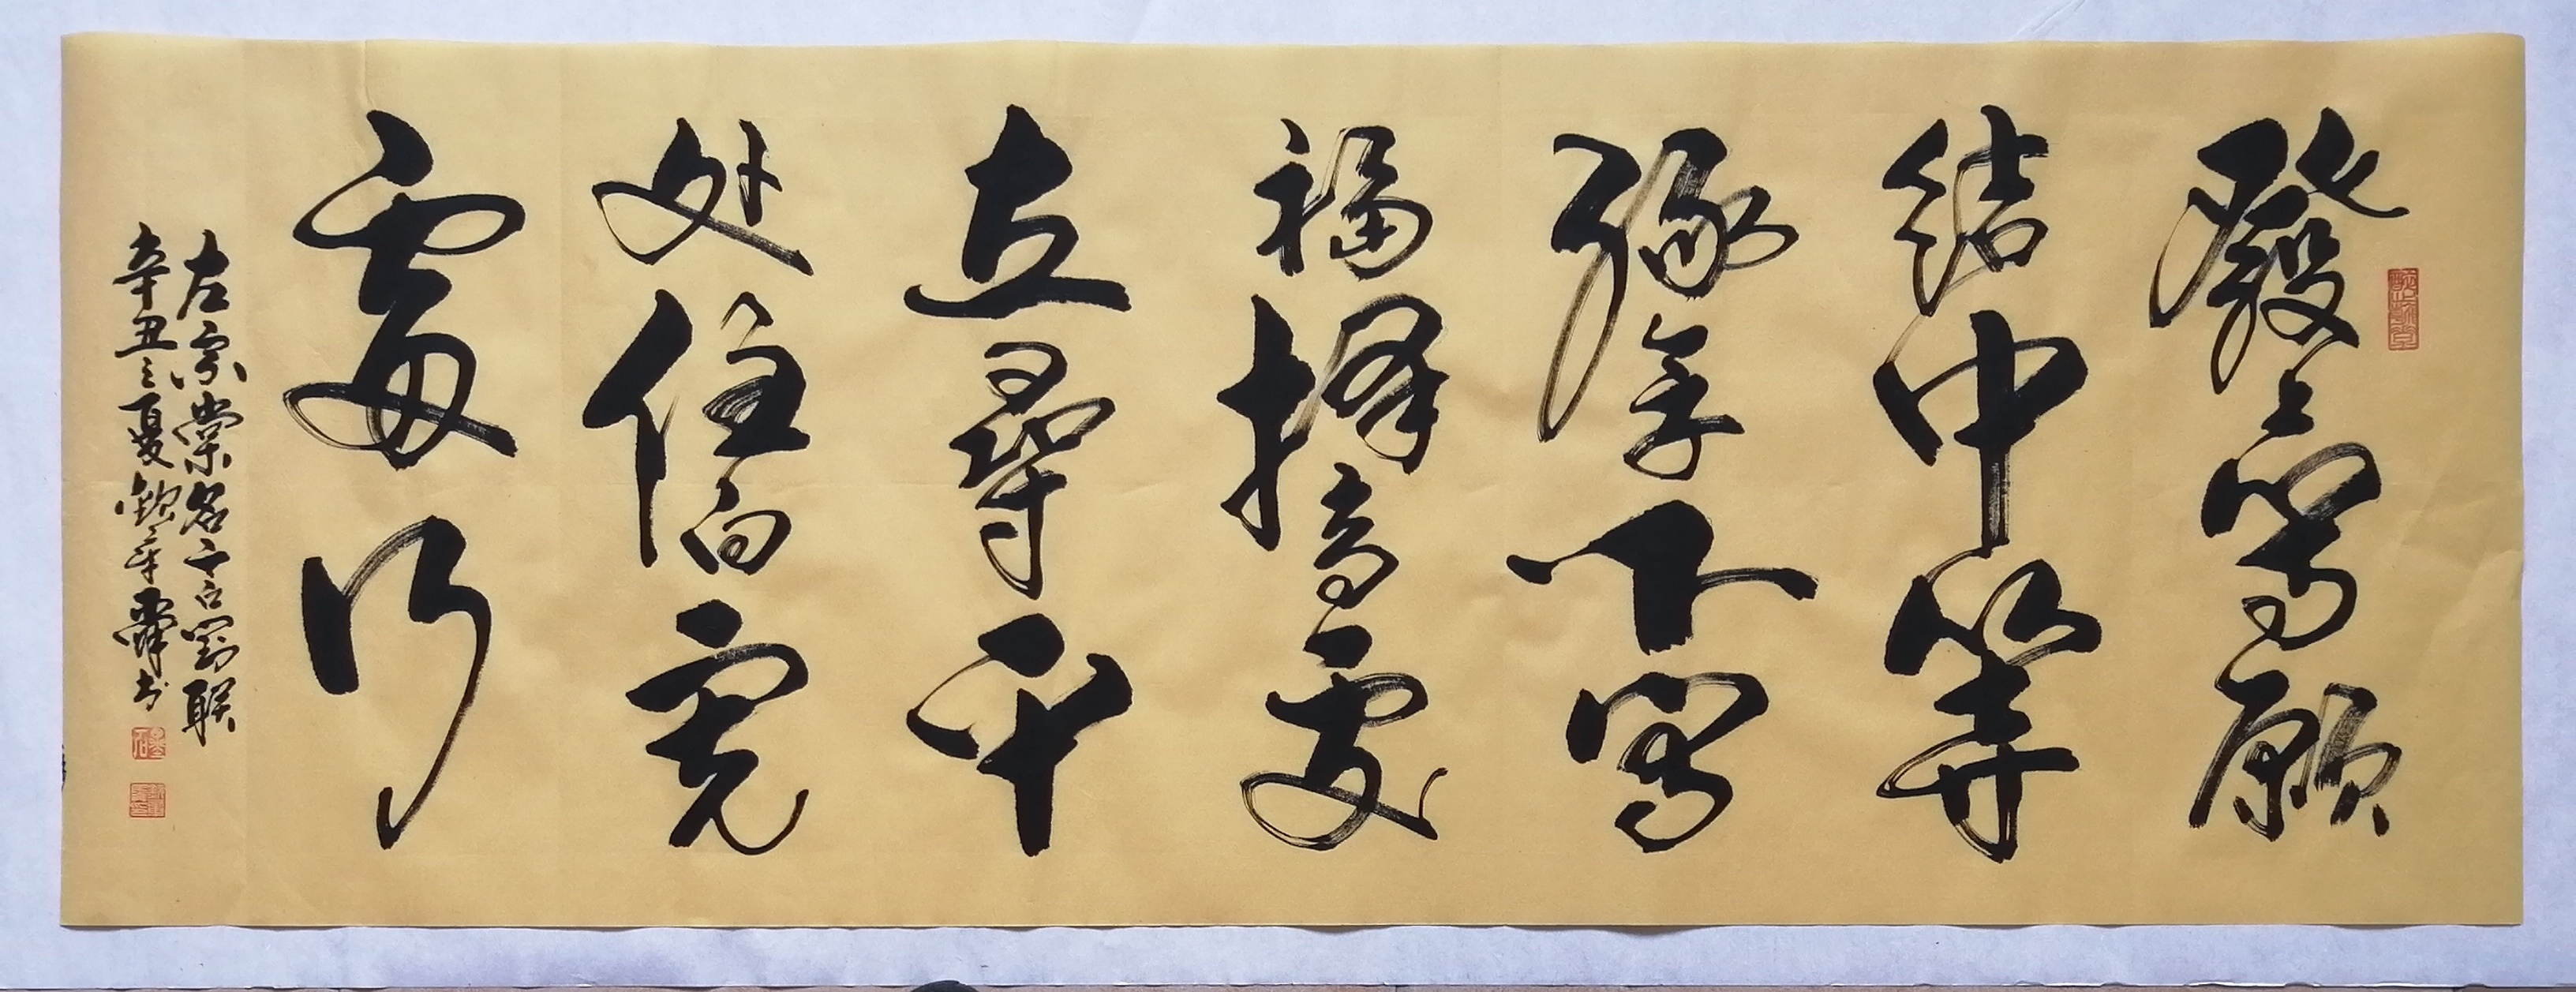 發上等願
結中等
緣享下等
福擇高處
立尋平
处住向寬
處行
左宗棠名言劉联
辛丑之夏